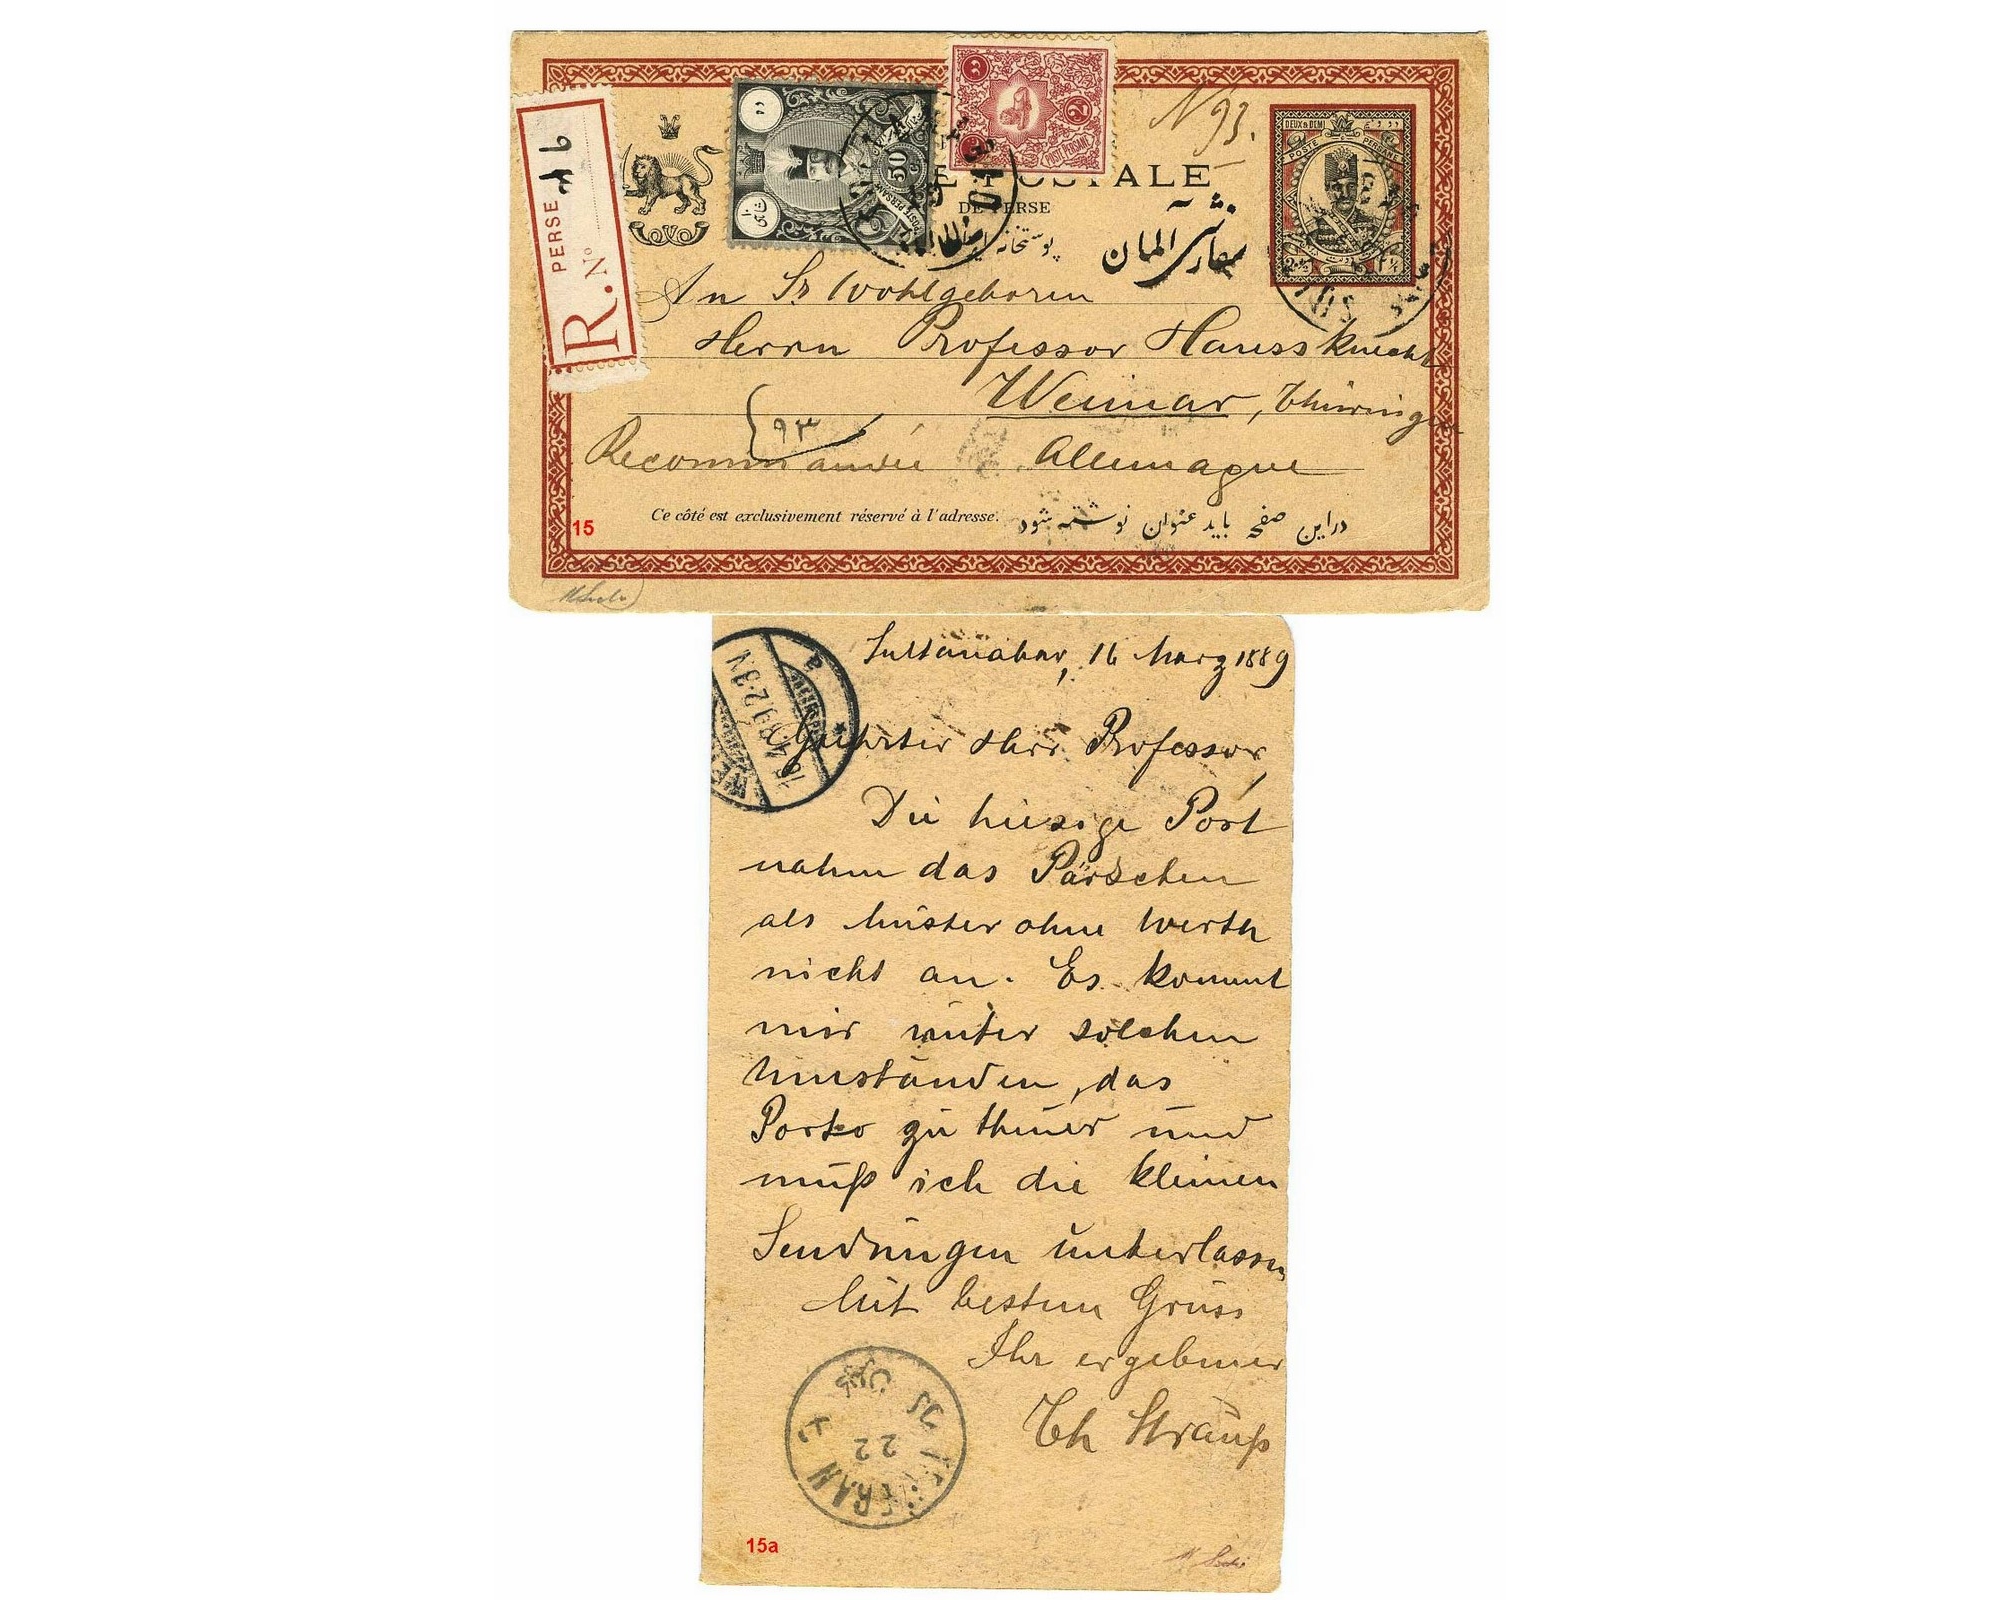 PERSE
R. No
50
POSTE PERSANE
2
POSTE PERSANE
N 93.
DEUX & DEMI
POSTE PERSANE
2½
E POSTALE
DE PERSE
پوستخانه
سفارشی المان
An Sr Wohlgeboren
Herrn Professor Haussknecht
Weimar, Thüringen
۹۳
Recommandée Allemagne
Ce côté est exclusivement réservé à l'adresse.
دراین صفحه باید عنوان نوشته شود
15
Sultanabad, 16 März 1889
Geehrter Herr Professor,
Die hiesige Post
nahm das Päckchen
als Muster ohne Werth
nicht an. Es kommt
mir unter solchen
Umständen, das
Porto zu theuer und
muß ich die kleinen
Sendungen unterlassen
Mit bestem Gruss
Ihr ergebener
Th Strauß
22
15a